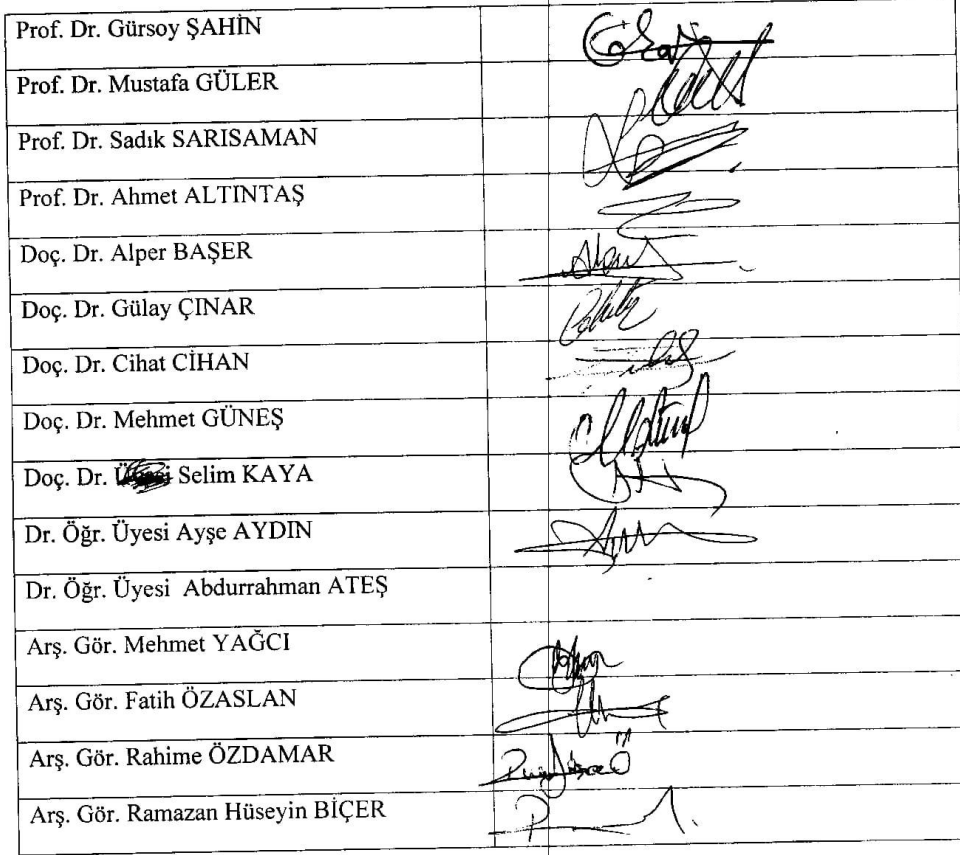 Prof. Dr. Gürsoy ŞAHİN
Prof. Dr. Mustafa GÜLER
Prof. Dr. Sadık SARISAMAN
Prof. Dr. Ahmet ALTINTAŞ
Doç. Dr. Alper BAŞER
Doç. Dr. Gülay ÇINAR
Doç. Dr. Cihat CİHAN
Doç. Dr. Mehmet GÜNEŞ
Doç. Dr. Selim KAYA
Dr. Öğr. Üyesi Ayşe AYDIN
Dr. Öğr. Üyesi Abdurrahman ATEŞ
Arş. Gör. Mehmet YAĞCI
Arş. Gör. Fatih ÖZASLAN
Arş. Gör. Rahime ÖZDAMAR
Arş. Gör. Ramazan Hüseyin BİÇER